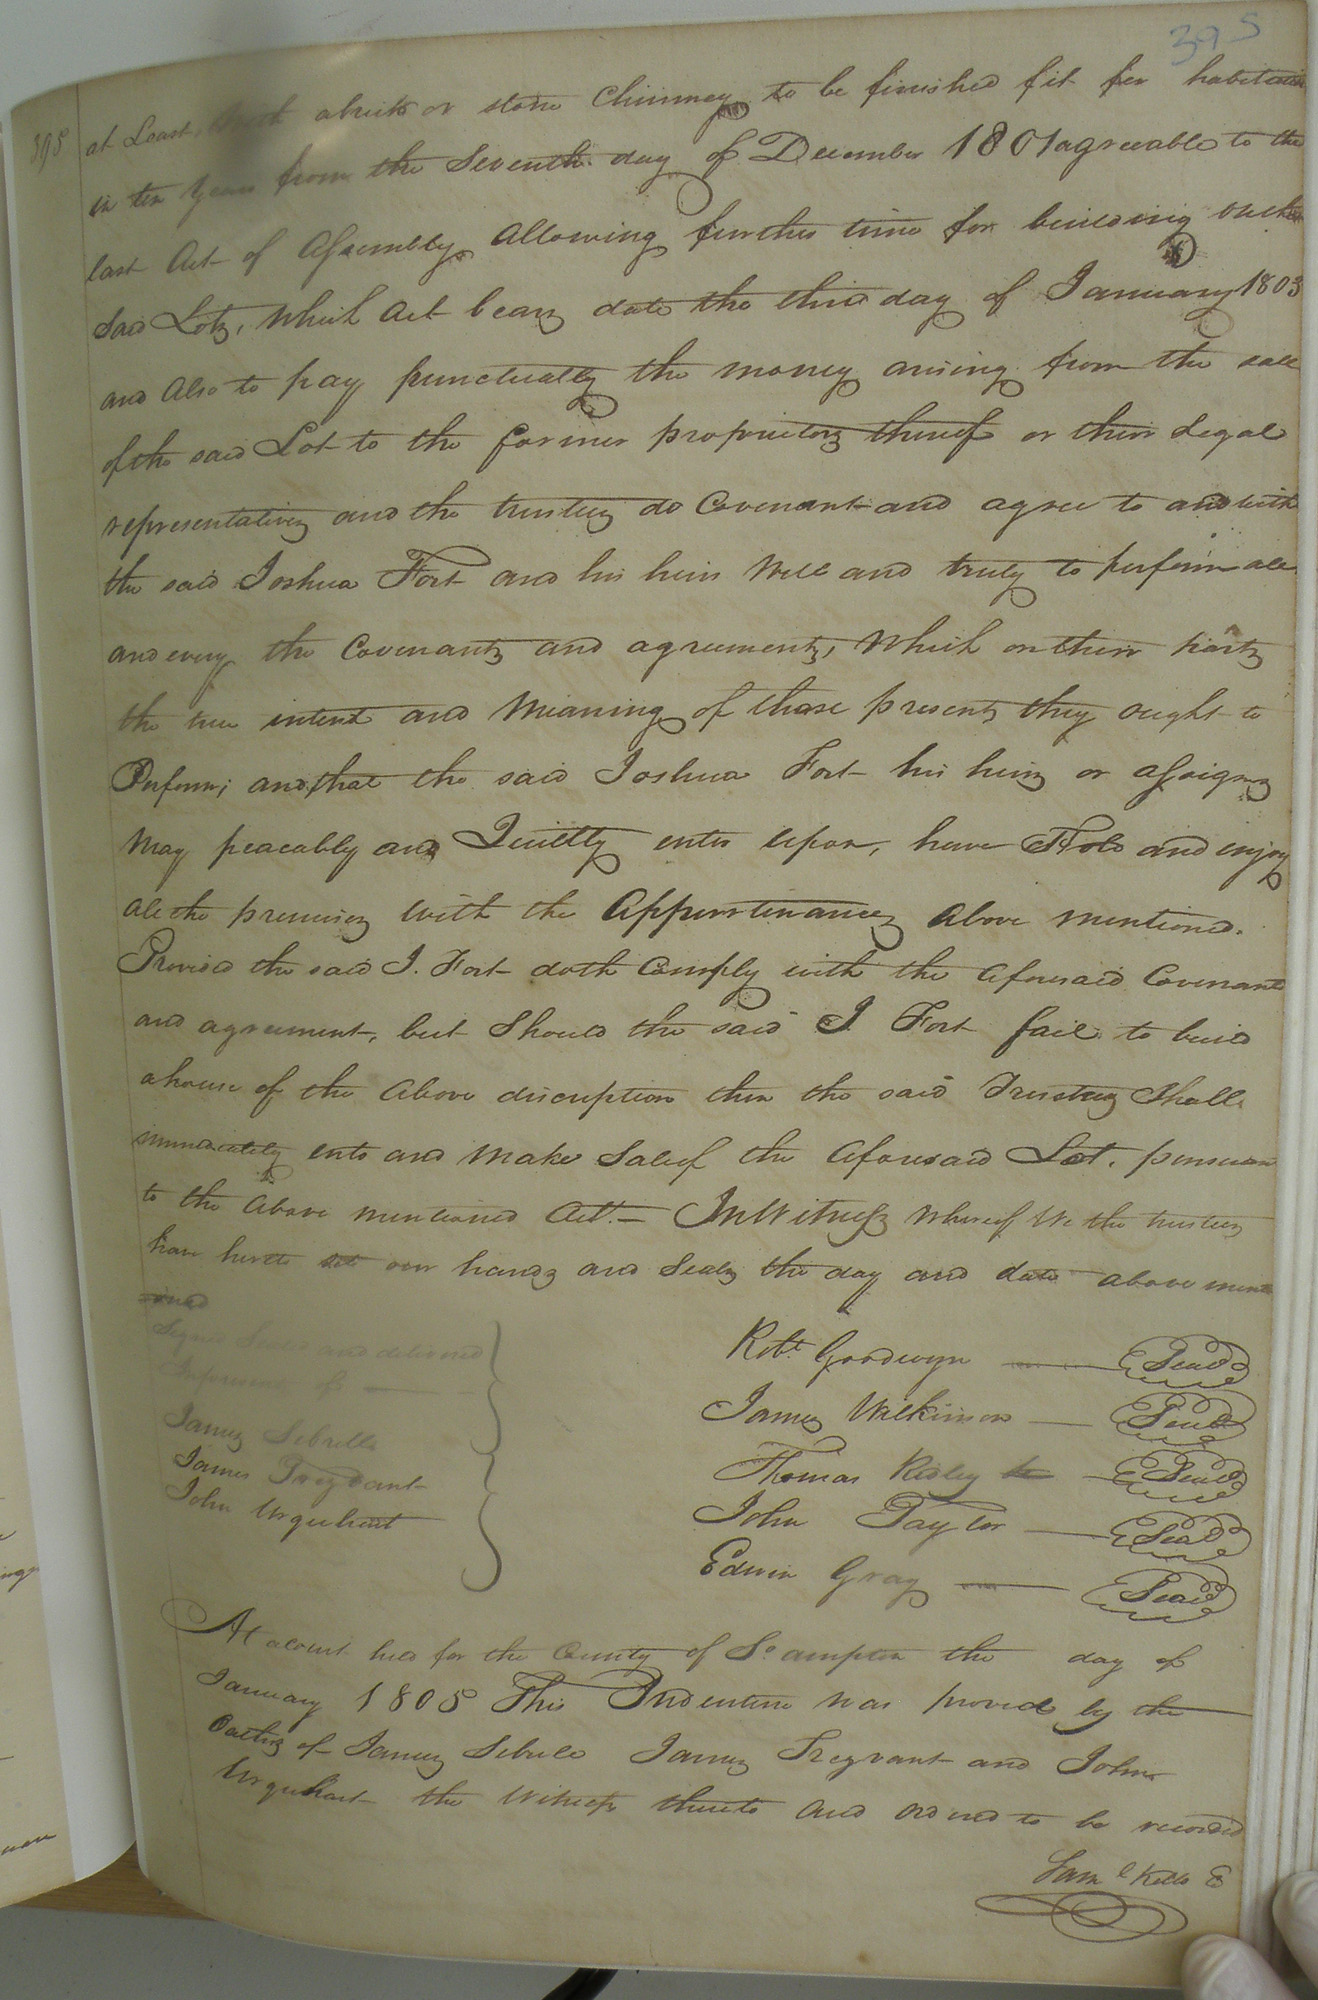 395
395
at Least, with a brick or stone Chimney to be finished fit for habitation
in ten Years from the Seventh day of December 1801 agreeable to the
last Act of Assembly Allowing further time for building
Said Lots, Which Act bears date the third day of January 1803
and Also to pay punctually the money arising from the sale
of the said Lot to the former proprietors thereof or their Legal
representatives and the trustees do Covenant and agree to and with
the said Joshua Fort and his heirs Well and truly to perform all
and every the Covenants and agreements, Which on their parts
the true intent and Meaning of these presents they ought to
Perform; and that the said Joshua Fort his heirs or assigns
May peacably and Quietly enter upon, have Hold and enjoy
all the premises With the Appurtenances Above mentioned.
Provided the said J. Fort doth Comply with the Aforesaid Covenant
and agreement, but Should the said J Fort fail to build
a house of the Above discription then the said Trustees Shall
immediately ento and Make Sale of the Aforesaid Lot. pursuan
to the Above mentioned Act. — In Witness Whereof We the trustees
have hereto set our hands and Seals the day and date above menti
oned
Signed Sealed and delivered
In presence of —
James Sebrelle
James Trezvant
John Urquhart
Robt. Goodwyn — Seal
James Wilkinson — Seal
Thomas Ridley — Seal
John Taylor — Seal
Edwin Gray — Seal
At a Court held for the County of So. ampton the day of
January 1805 This Indenture was proved by the
Oaths of James Sebrele James Trezvant and John
Urquhart the Witness thereto and ordered to be recorded
Saml Kello C